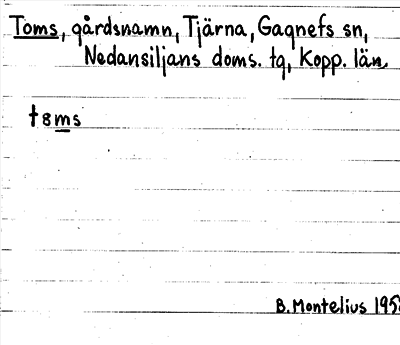 Toms, gårdsnamn, Tjärna, Gagnefs sn,
Nedansiljans doms. tg, Kopp. län
t8ms
B. Montelius